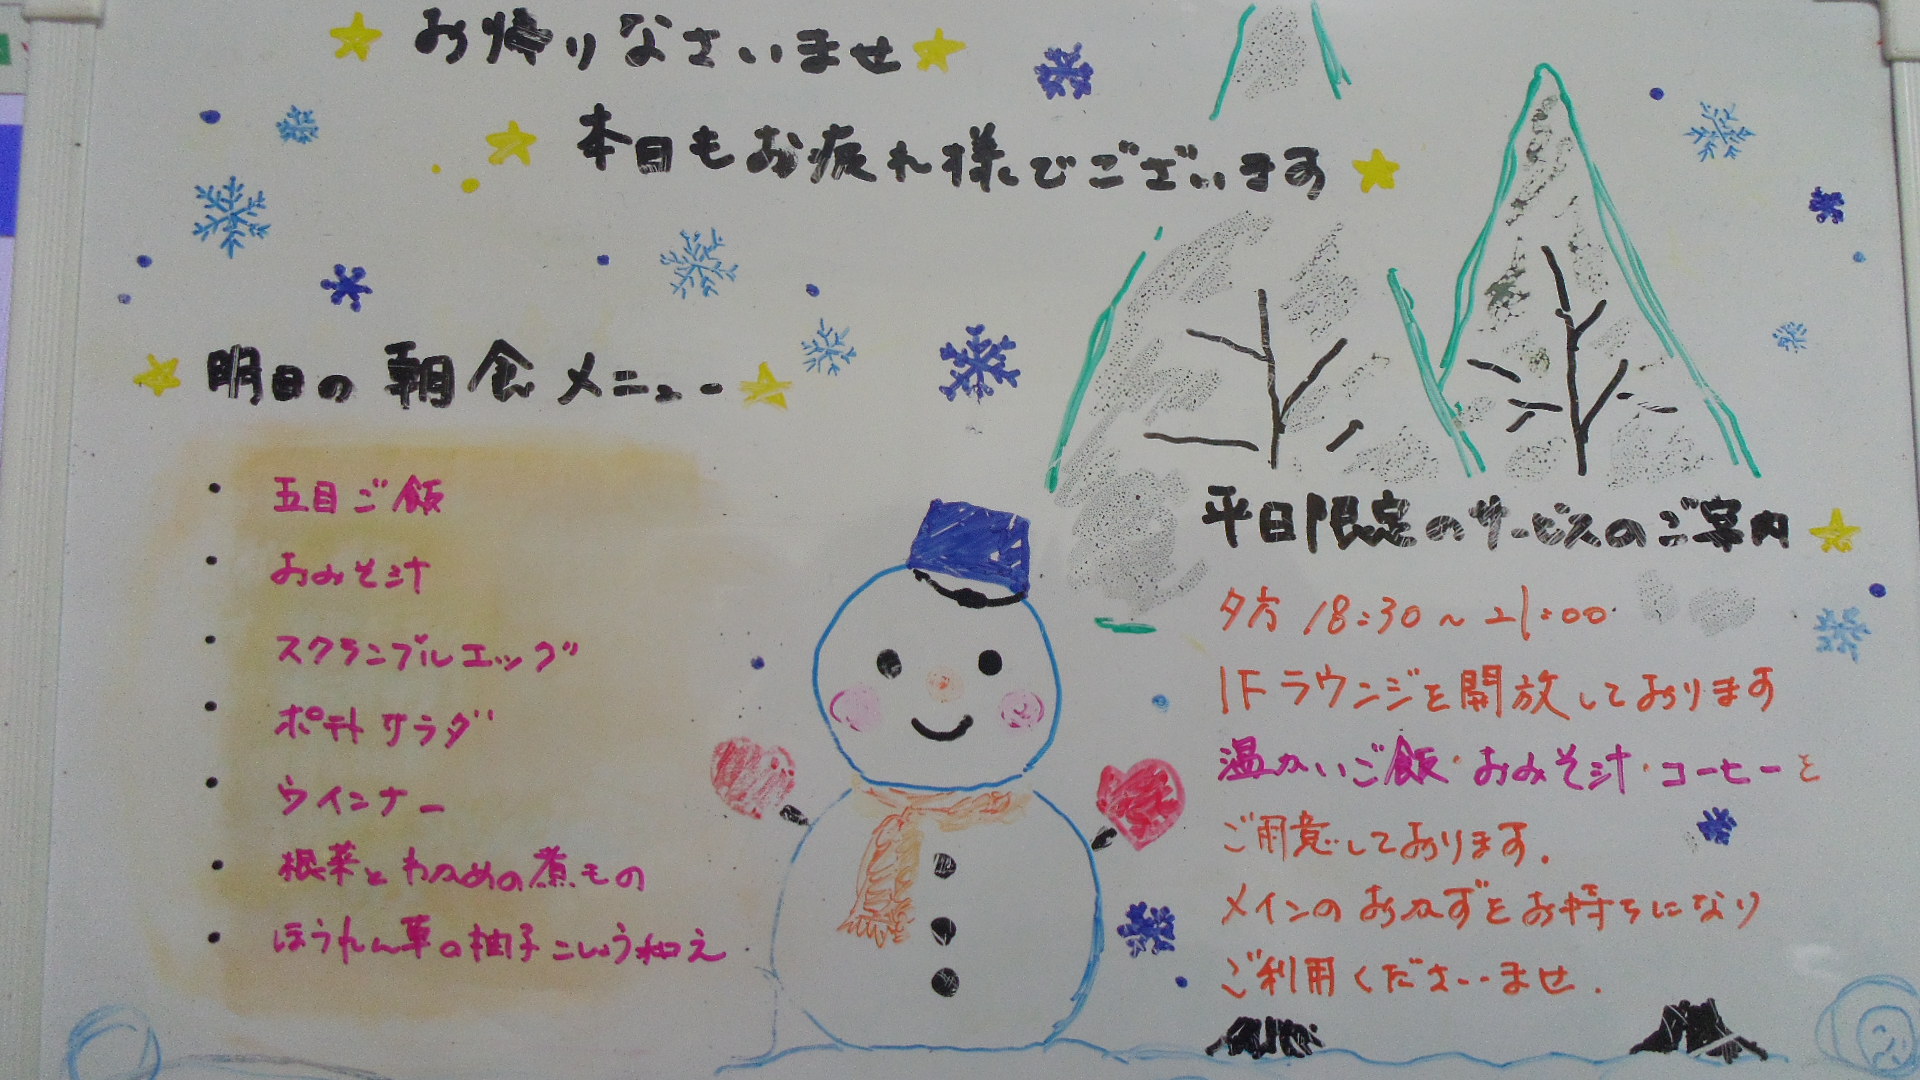 お帰りなさいませ
本日もお疲れ様でございます
明日の朝食メニュー
・五目ご飯
・おみそ汁
・スクランブルエッグ
・ポテトサラダ
・ウインナー
・根菜とわかめの煮もの
・ほうれん草の柚子こしょう和え
平日限定のサービスのご案内
夕方 18:30~21:00
1Fラウンジを開放しております
温かいご飯・おみそ汁・コーヒーを
ご用意しております.
メインのおかずをお持ちになり
ご利用くださいませ.